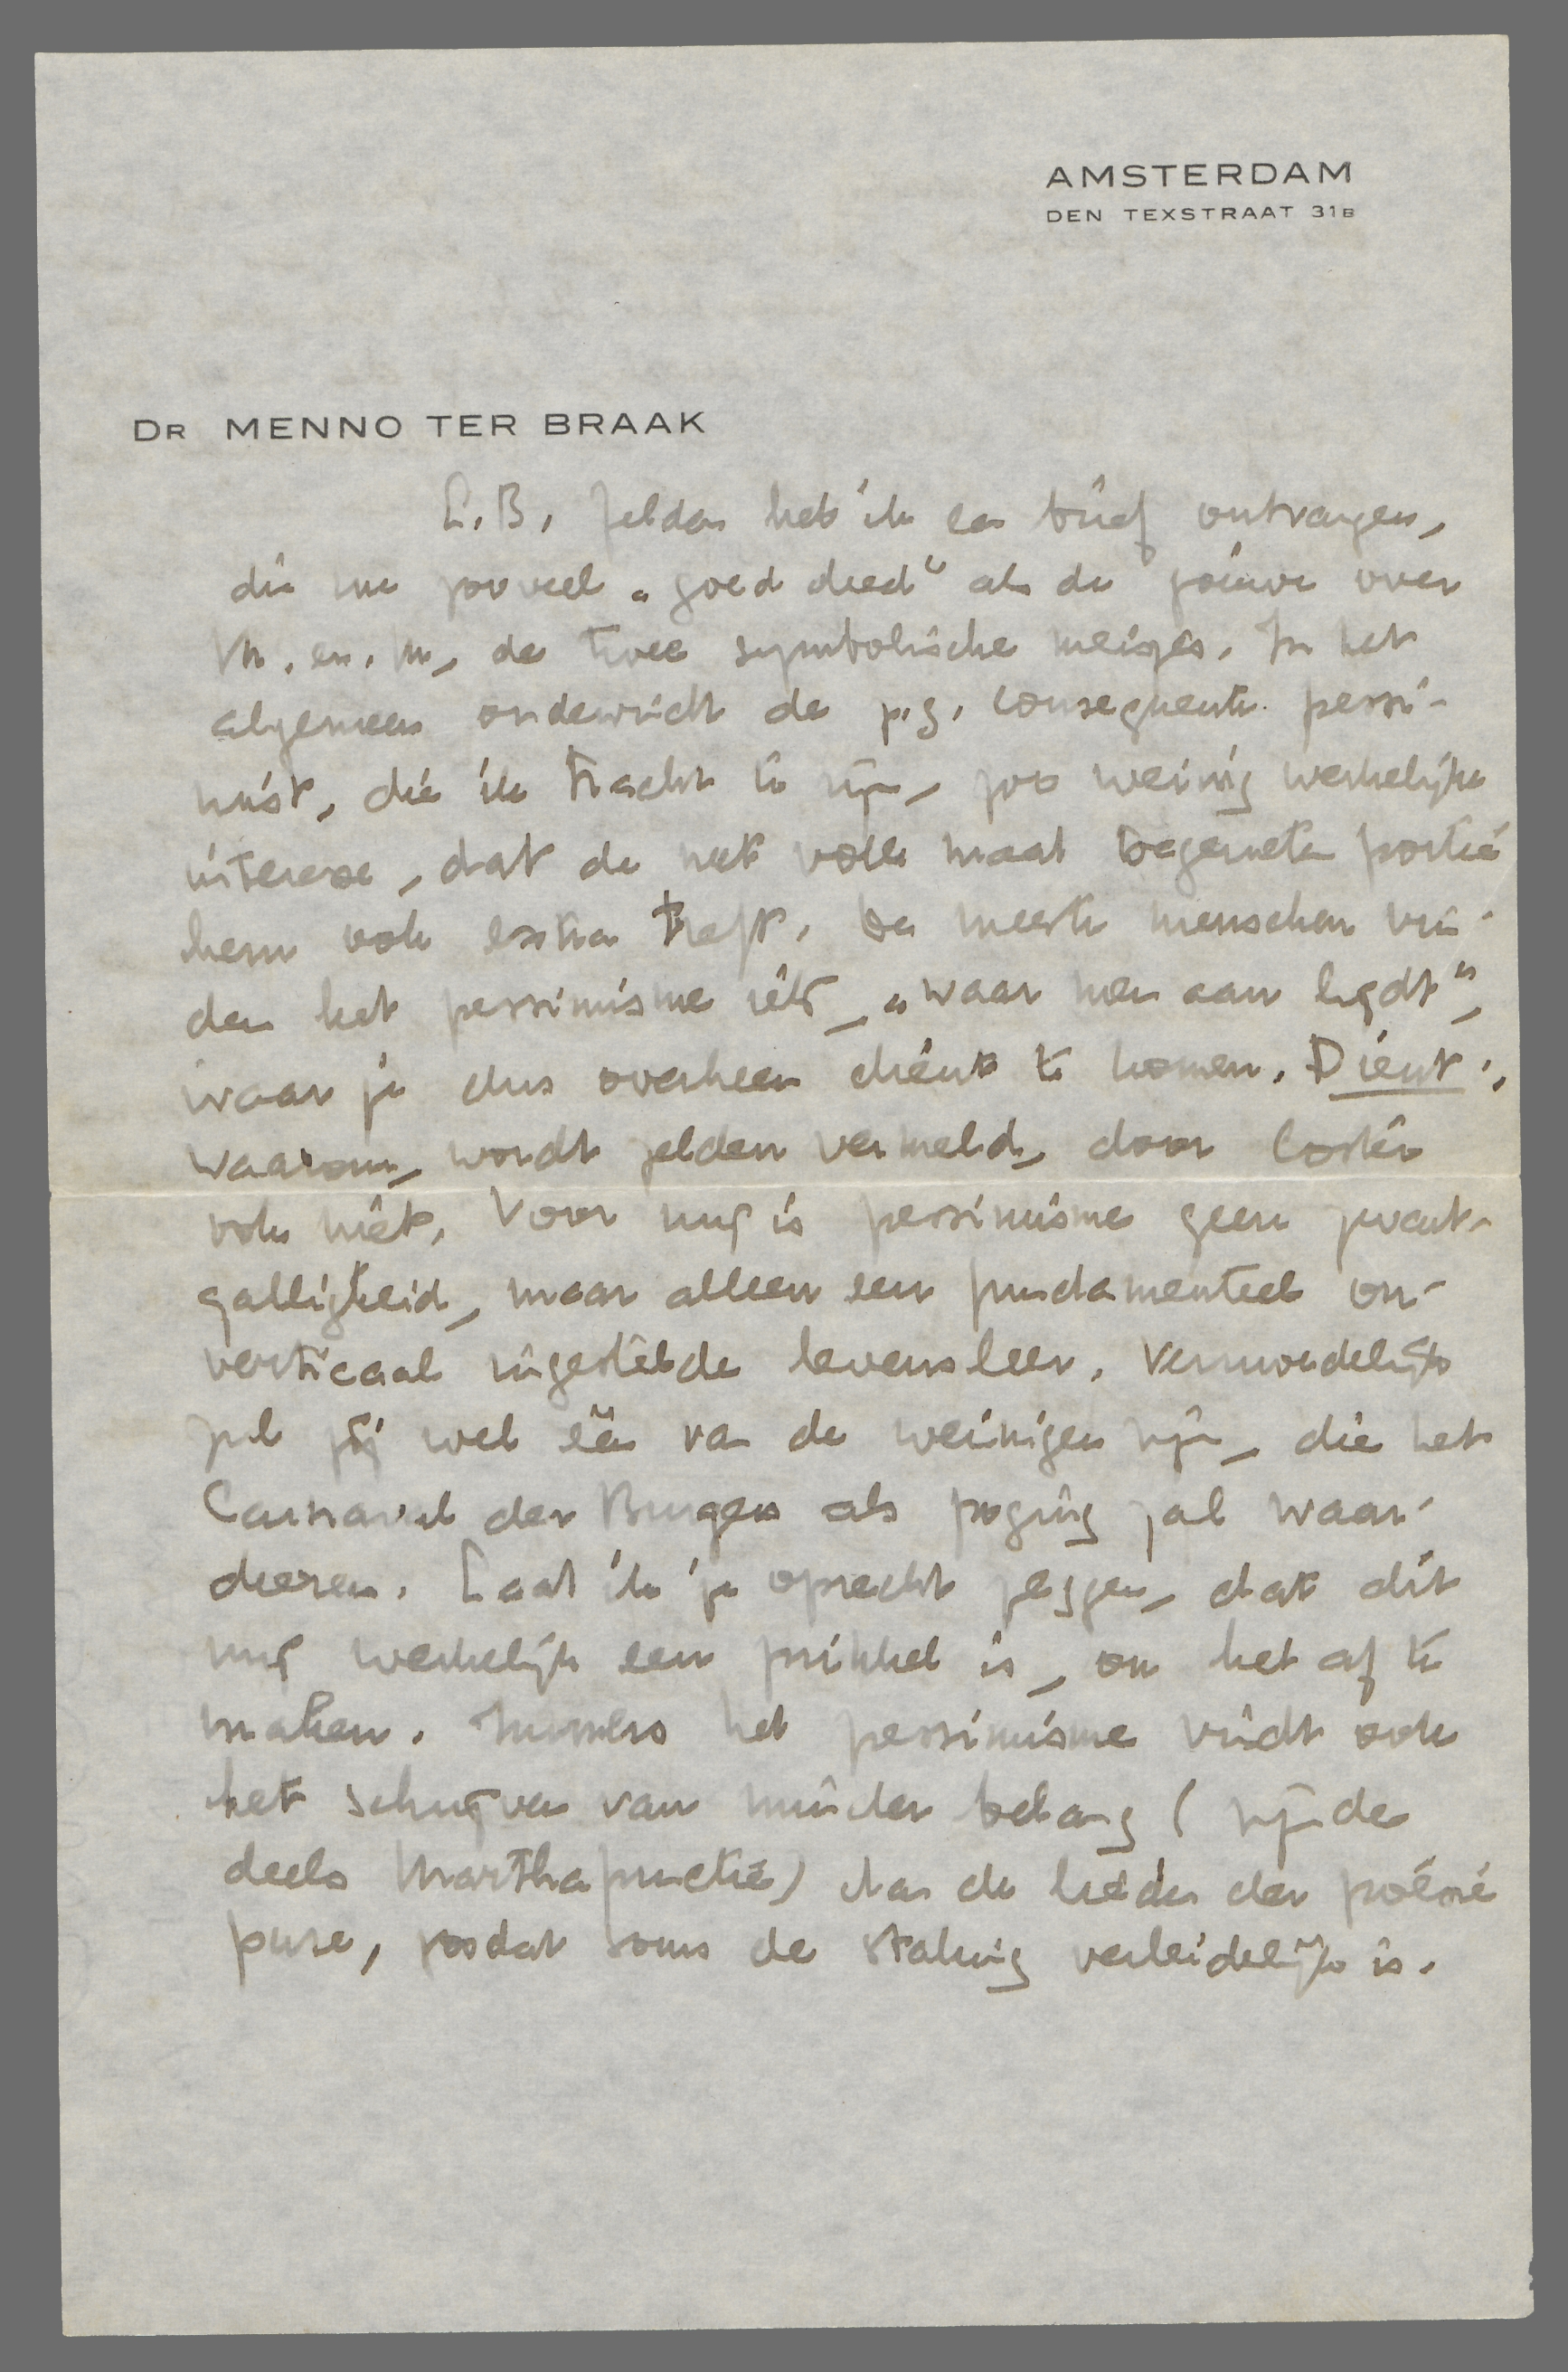 AMSTERDAM
DEN TEXSTRAAT 31B
DR MENNO TER BRAAK
L.B. Zelden heb ik een brief ontvangen,
die me zooveel „goed deed" als de jouwe over
M. en M., de twee symbolische meisjes. In het
algemeen ondervindt de z.g. consequente pessi-
mist, die ik tracht te zijn, zoo weinig werkelijke
interesse, dat de met volle maat toegemeten portie
hem ook extra treft. De meeste menschen vin-
den het pessimisme iets, „waar men aan lijdt",
waar je dus overheen dient te komen. Dient;
waarom, wordt zelden vermeld, door Coster
ook niet. Voor mij is pessimisme geen zwart-
galligheid, maar alleen een fundamenteel on-
verticaal ingestelde levensleer. Vermoedelijk
zul jij wel één van de weinigen zijn, die het
Carnaval der Burgers als poging zal waar-
deeren. Laat ik je oprecht zeggen, dat dit
mij werkelijk een prikkel is, om het af te
maken. Immers het pessimisme vindt ook
het schrijven van minder belang (zijnde
deels Marthafunctie) dan de leider der poésie
pure, zoodat soms de staking verleidelijk is.